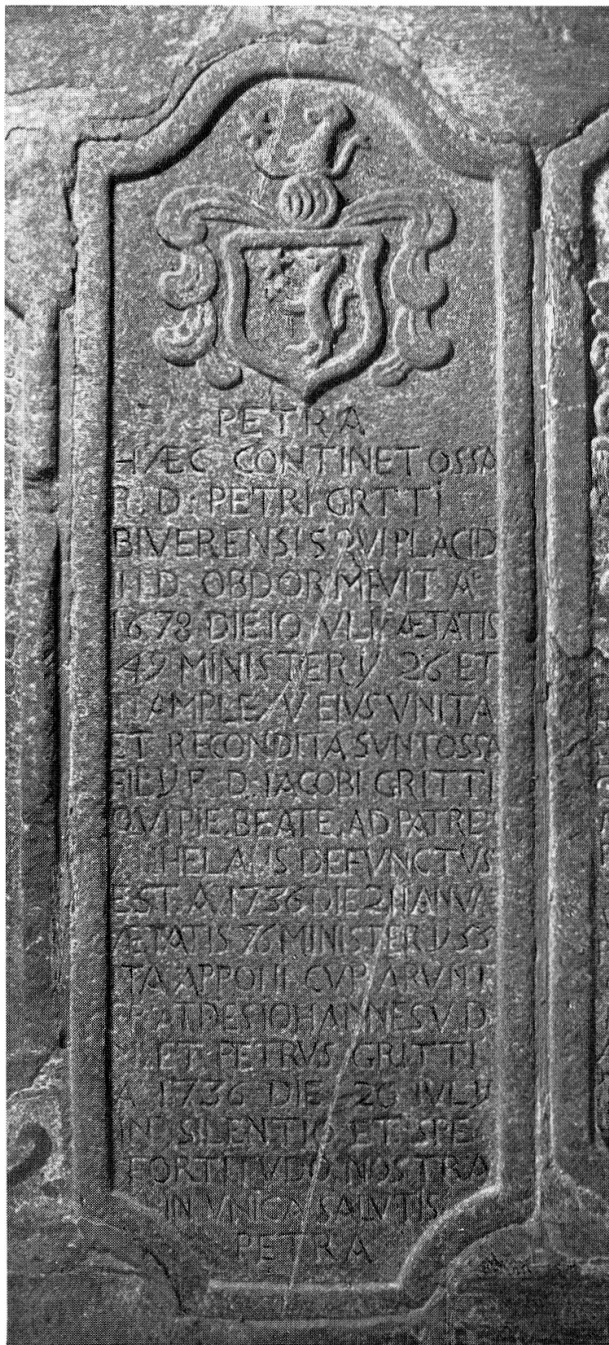 PETRA
HÆC CONTINET OSSA
R. D. PETRI GRITTI
BIVERENSIS QVI PLACID
IN D. OBDORMIVIT Aº
1678 DIE 10 IVLY ÆTATIS
49 MINISTERY 26 ET
AMPLEXV EIVS VNITA
ET RECONDITA SVNT OSSA
FILY R. D. IACOBI GRITTI
QVI PIE. BEATE. AD PATRE
DEFVNCTVS
EST. A. 1736 DIE 21 IANVA
ÆTATIS 76 MINISTERY 53
ITA APPONI CVPIARVNT
IOHANNES V. D.
M. ET PETRVS GRITTI
A 1736 DIE 20 IVLY
IN SILENTIO ET SPE
FORTITVDO NOSTRA
IN VNICA SALVTIS
PETRA